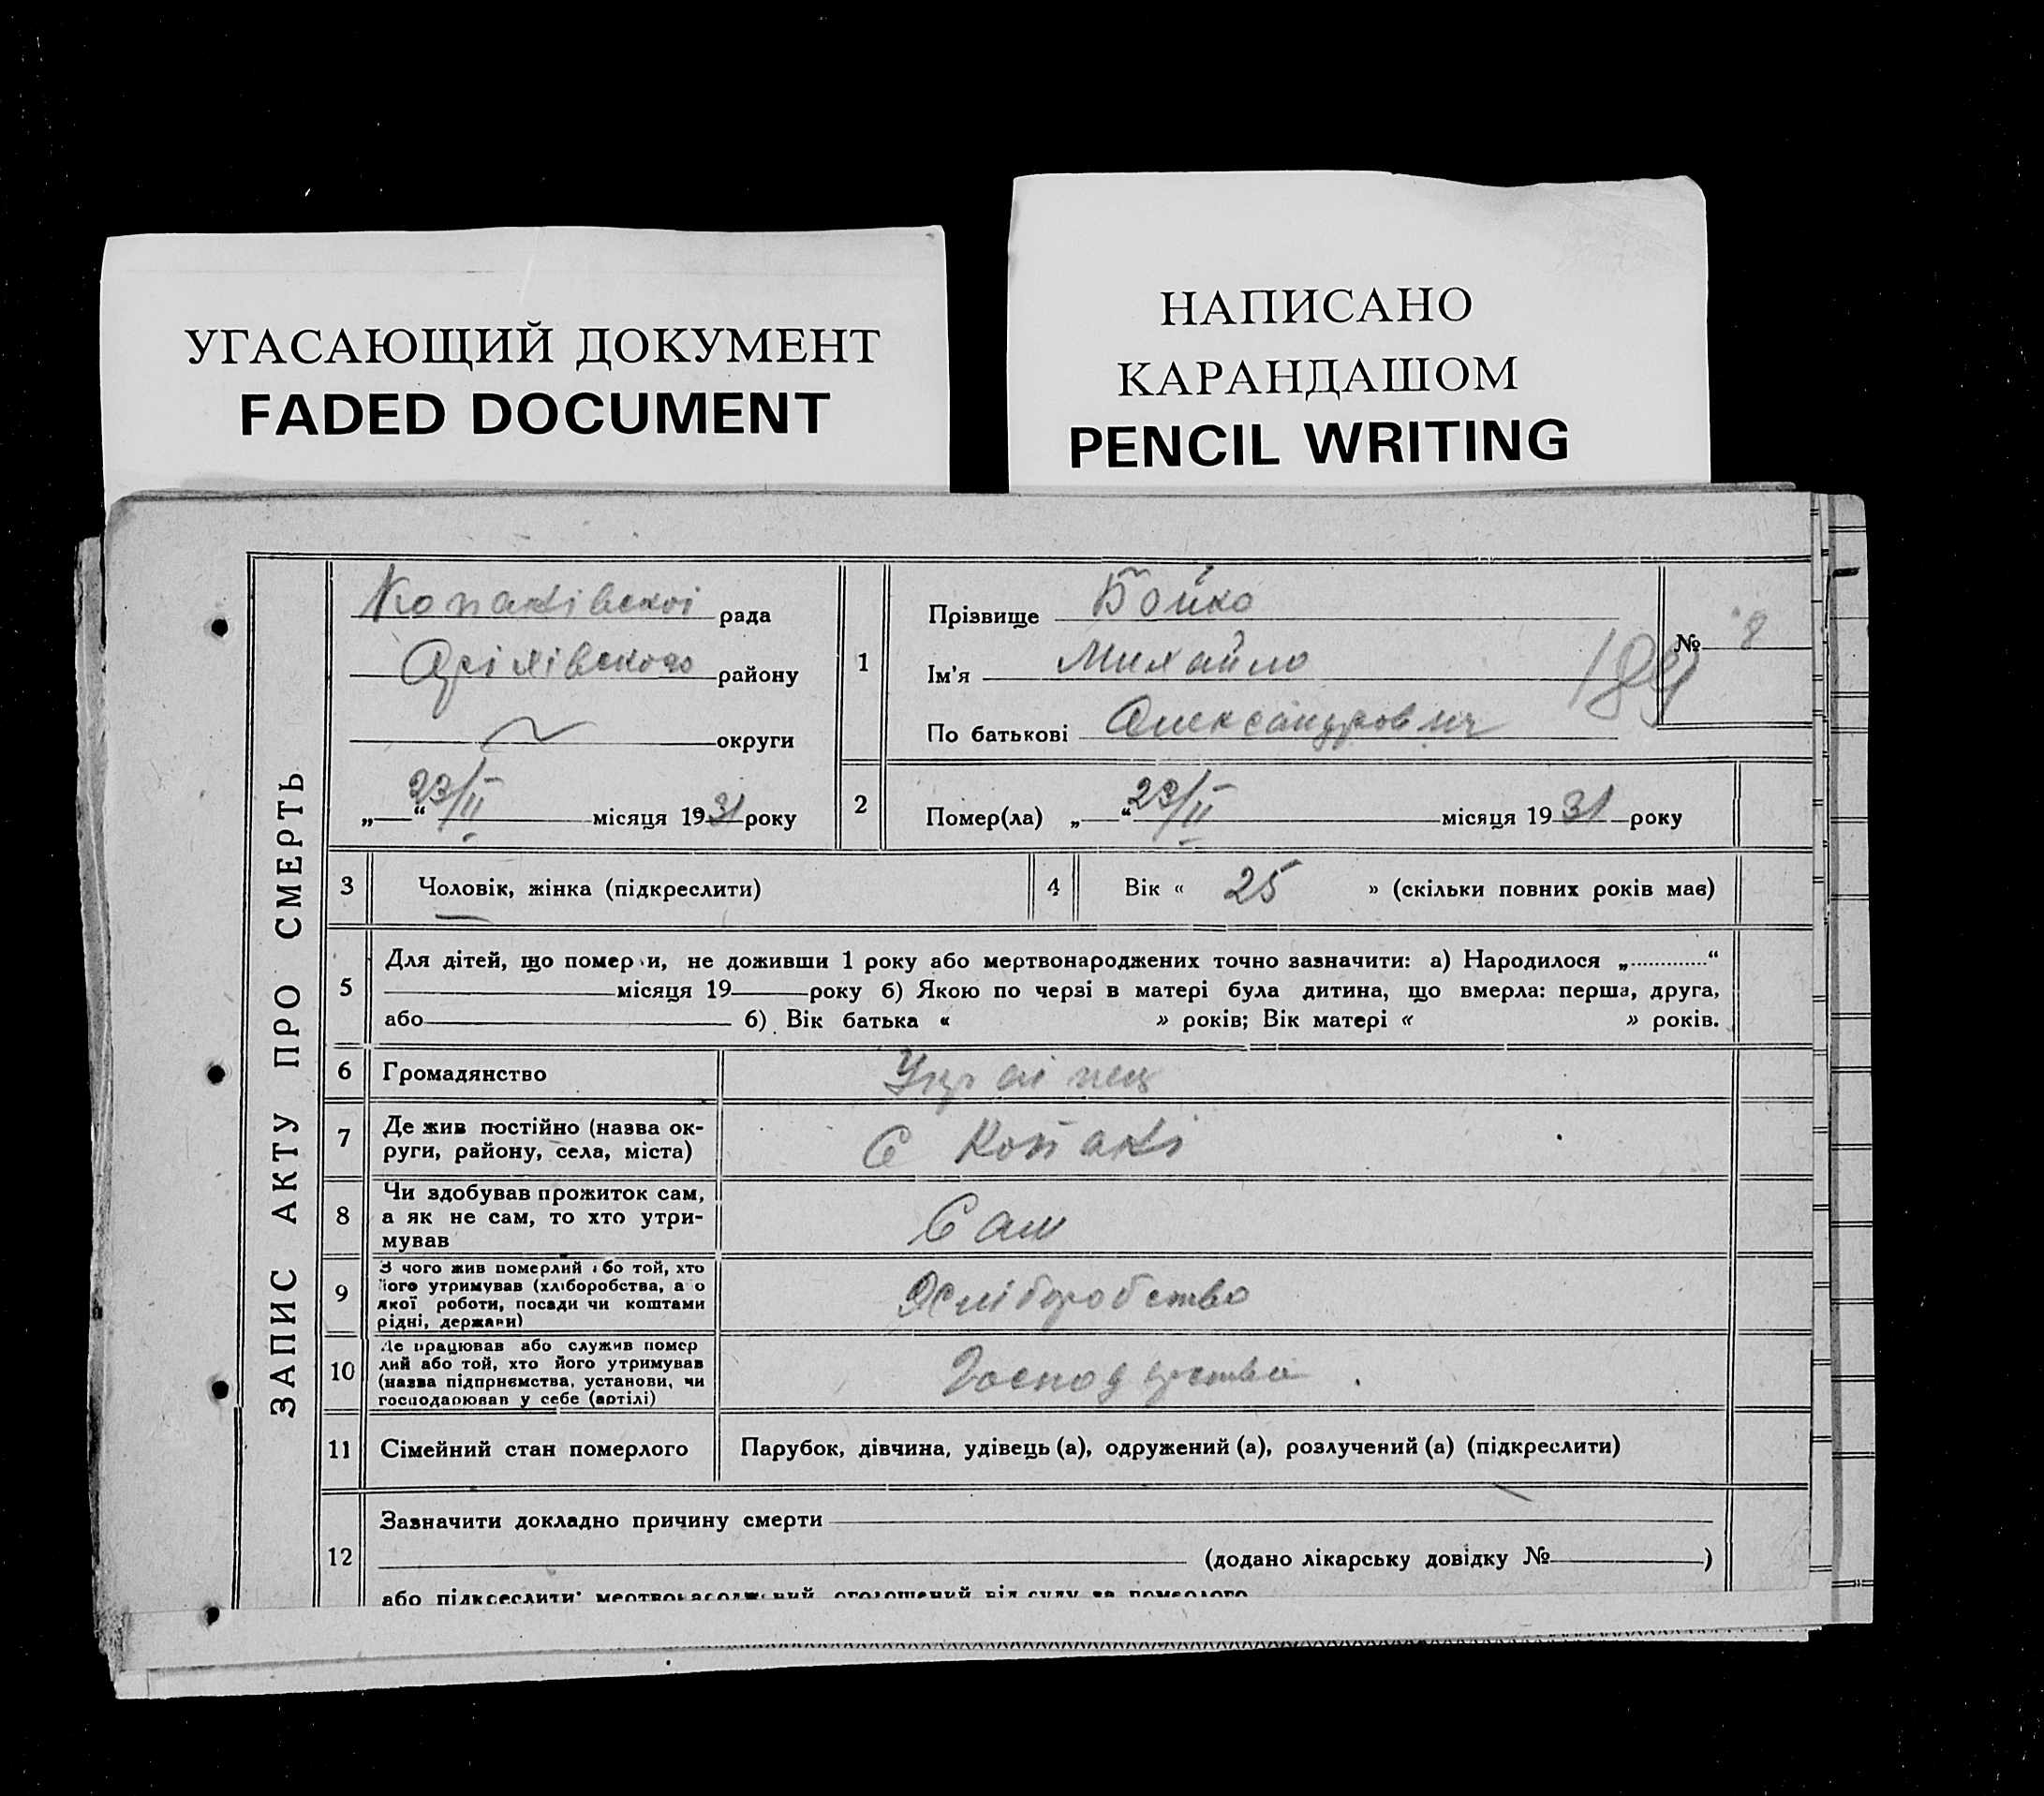 УГАСАЮЩИЙ ДОКУМЕНТ
FADED DOCUMENT
НАПИСАНО
КАРАНДАШОМ
PENCIL WRITING
ЗАПИС АКТУ ПРО СМЕРТЬ
Копаківскоі рада
району
округи
„ “ 23/II місяця 1931 року
1
Прізвище Бойко
Ім'я Михайло
По батькові Александрович
№ 8
189
2
Помер(ла) „ “ 23/II місяця 1931 року
3 Чоловік, жінка (підкреслити)
4 Вік « 25 » (скільки повних років має)
5
Для дітей, що помер и, не доживши 1 року або мертвонароджених точно зазначити: а) Народилося „ “
місяця 19 року б) Якою по черзі в матері була дитина, що вмерла: перша, друга,
або б) Вік батька « » років; Вік матері « » років.
6 Громадянство Украінец
7
Де жив постійно (назва ок-
руги, району, села, міста)
С Копакі
8
Чи здобував прожиток сам,
а як не сам, то хто утри-
мував
Сам
9
З чого жив померлий або той, хто
його утримував (хліборобства, а о
якої роботи, посади чи коштами
рідні, держави)
Хліборобство
10
Де працював або служив помер
лий або той, хто його утримував
(назва підприємства, установи, чи
господарював у себе (артілі)
Господарства
11 Сімейний стан померлого
Парубок, дівчина, удівець (а), одружений (а), розлучений (а) (підкреслити)
12
Зазначити докладно причину смерти
(додано лікарську довідку № )
або підкреслити: мертвонароджений, оголошений від суду за померлого